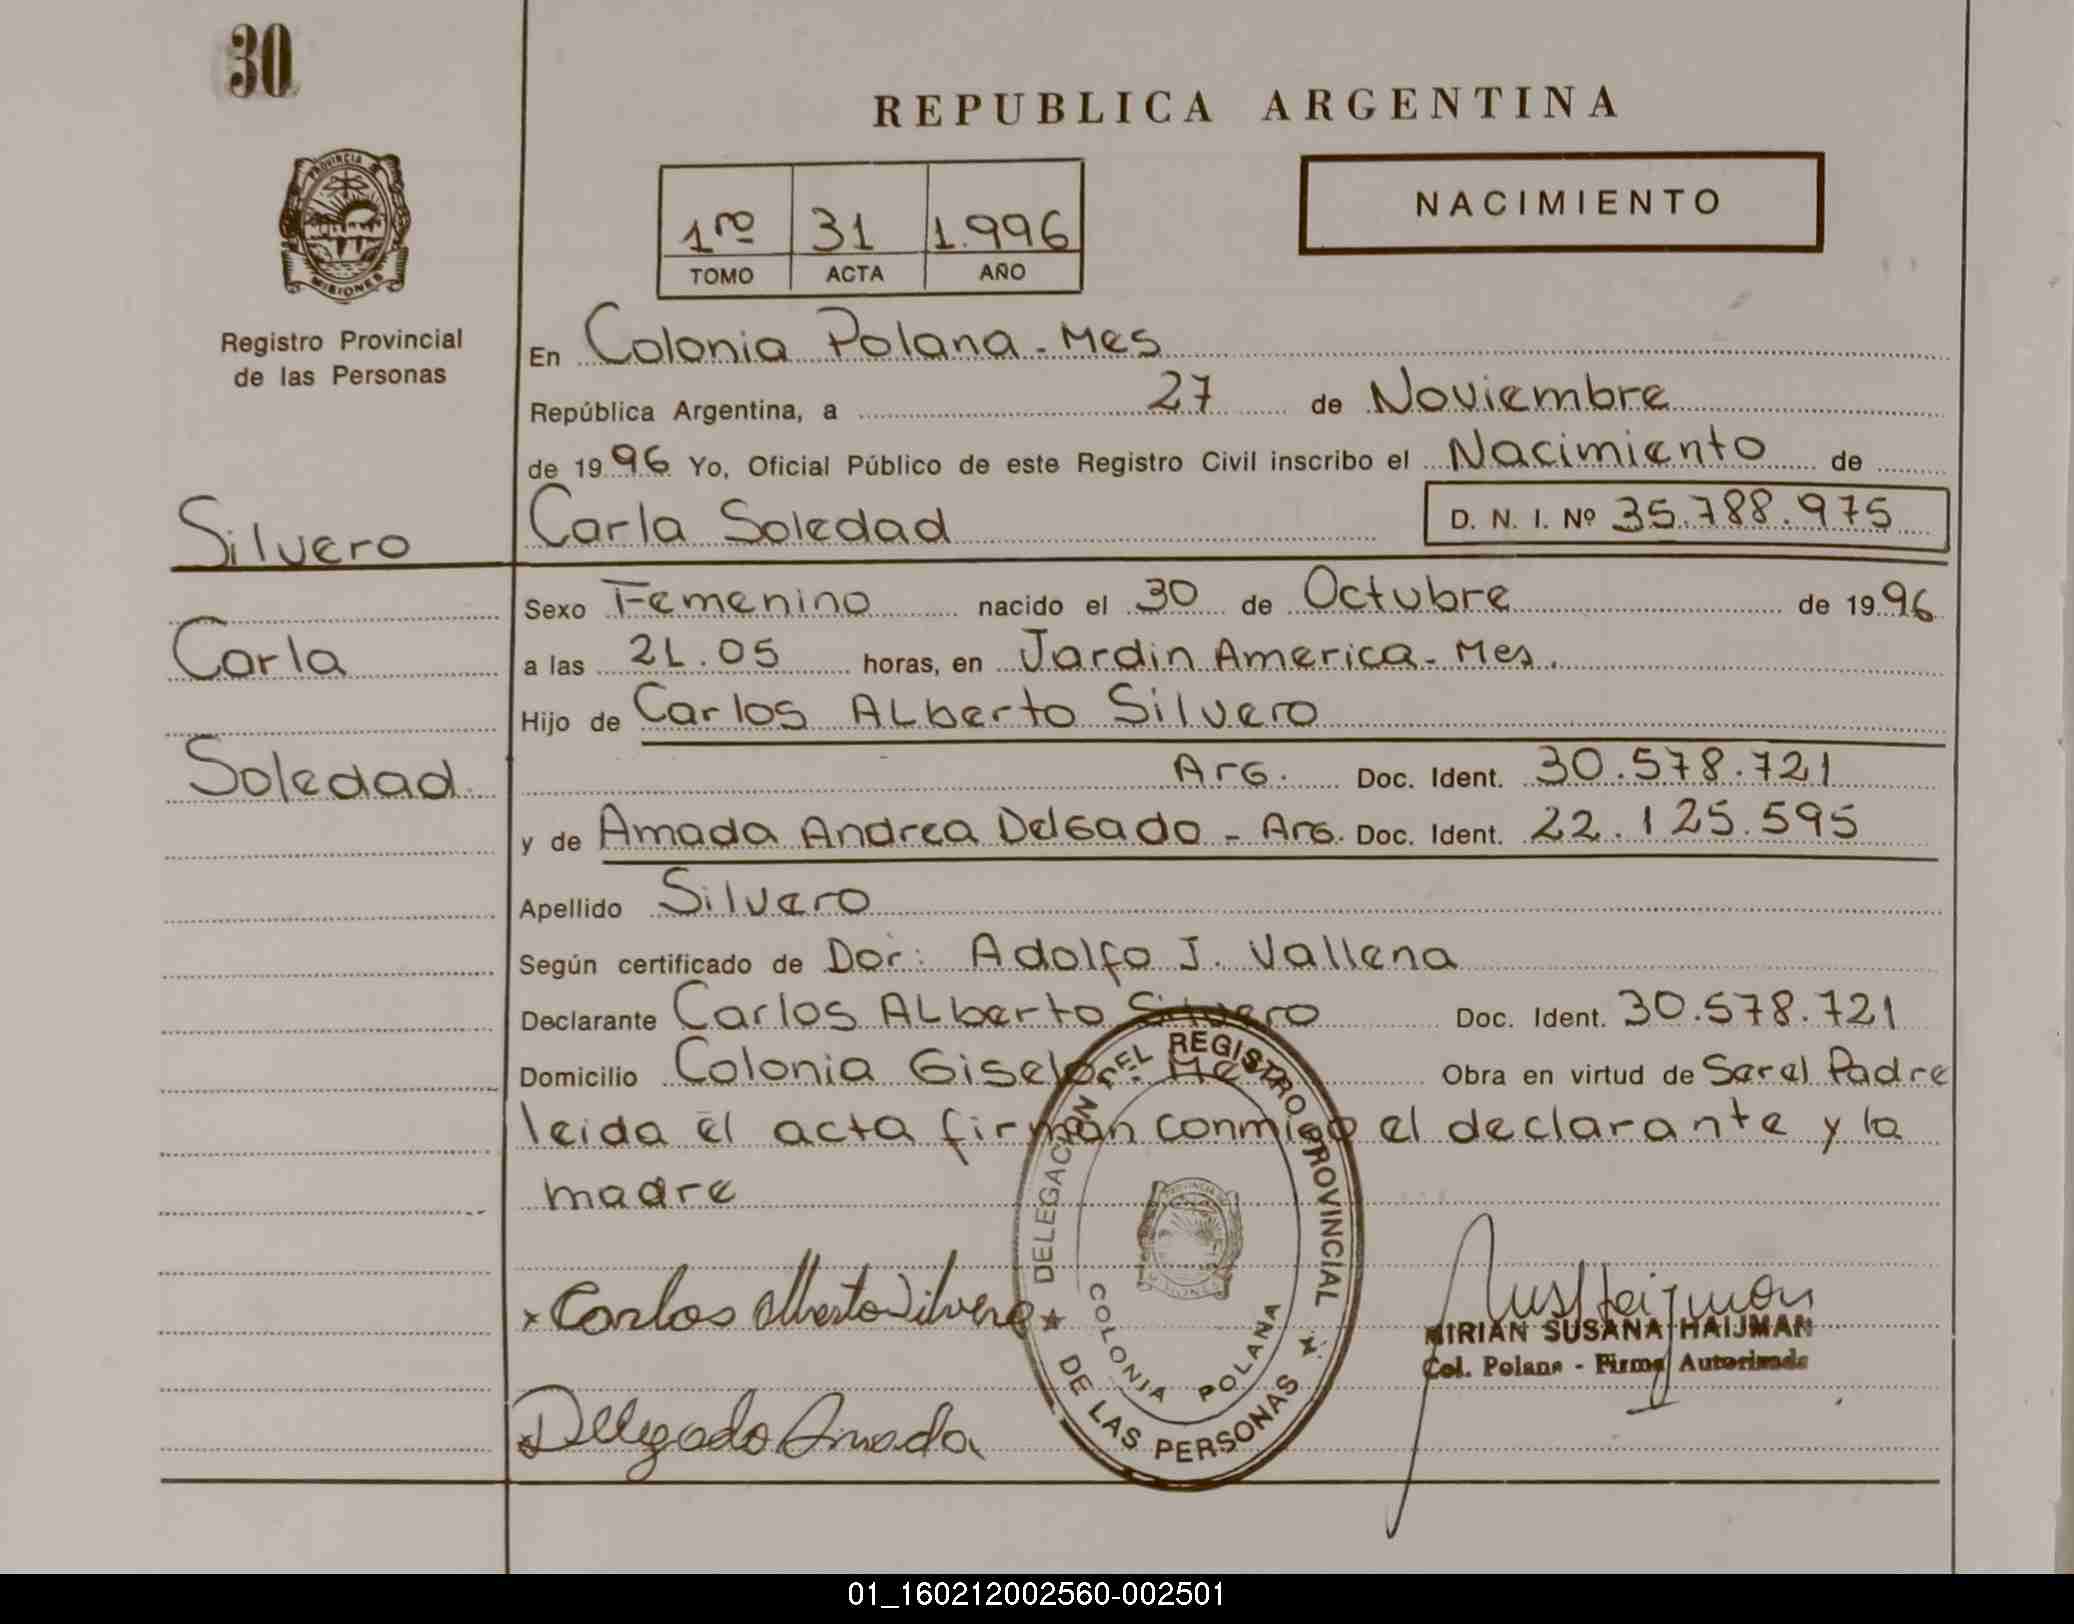 30
REPUBLICA ARGENTINA
NACIMIENTO
1ro 31 1.996
TOMO ACTA AÑO
PROVINCIA DE
MISIONES
Registro Provincial
de las Personas
En Colonia Polana - Mes
República Argentina, a 27 de Noviembre
de 1996 Yo, Oficial Público de este Registro Civil inscribo el Nacimiento de
Silvero
Carla Soledad D. N. I. Nº 35.788.975
Sexo Femenino nacido el 30 de Octubre de 1996
Carla
a las 21.05 horas, en Jardin America - Mes.
Hijo de Carlos ALberto Silvero
Soledad
Arg. Doc. Ident. 30.578.721
y de Amada Andrea Delgado - Arg. Doc. Ident. 22.125.595
Apellido Silvero
Según certificado de Dor: Adolfo J. Vallena
Declarante Carlos ALberto Silvero Doc. Ident. 30.578.721
Domicilio Colonia Gisela - Mes Obra en virtud de Serel Padre
leida el acta firman conmigo el declarante y la
madre
DELEGACION DEL REGISTRO PROVINCIAL
DE LAS PERSONAS
COLONIA POLANA
Carlos Alberto Silvero
Delgado Amada
MIRIAN SUSANA HAIJMAN
Col. Polana - Firma Autorizada
01_160212002560-002501